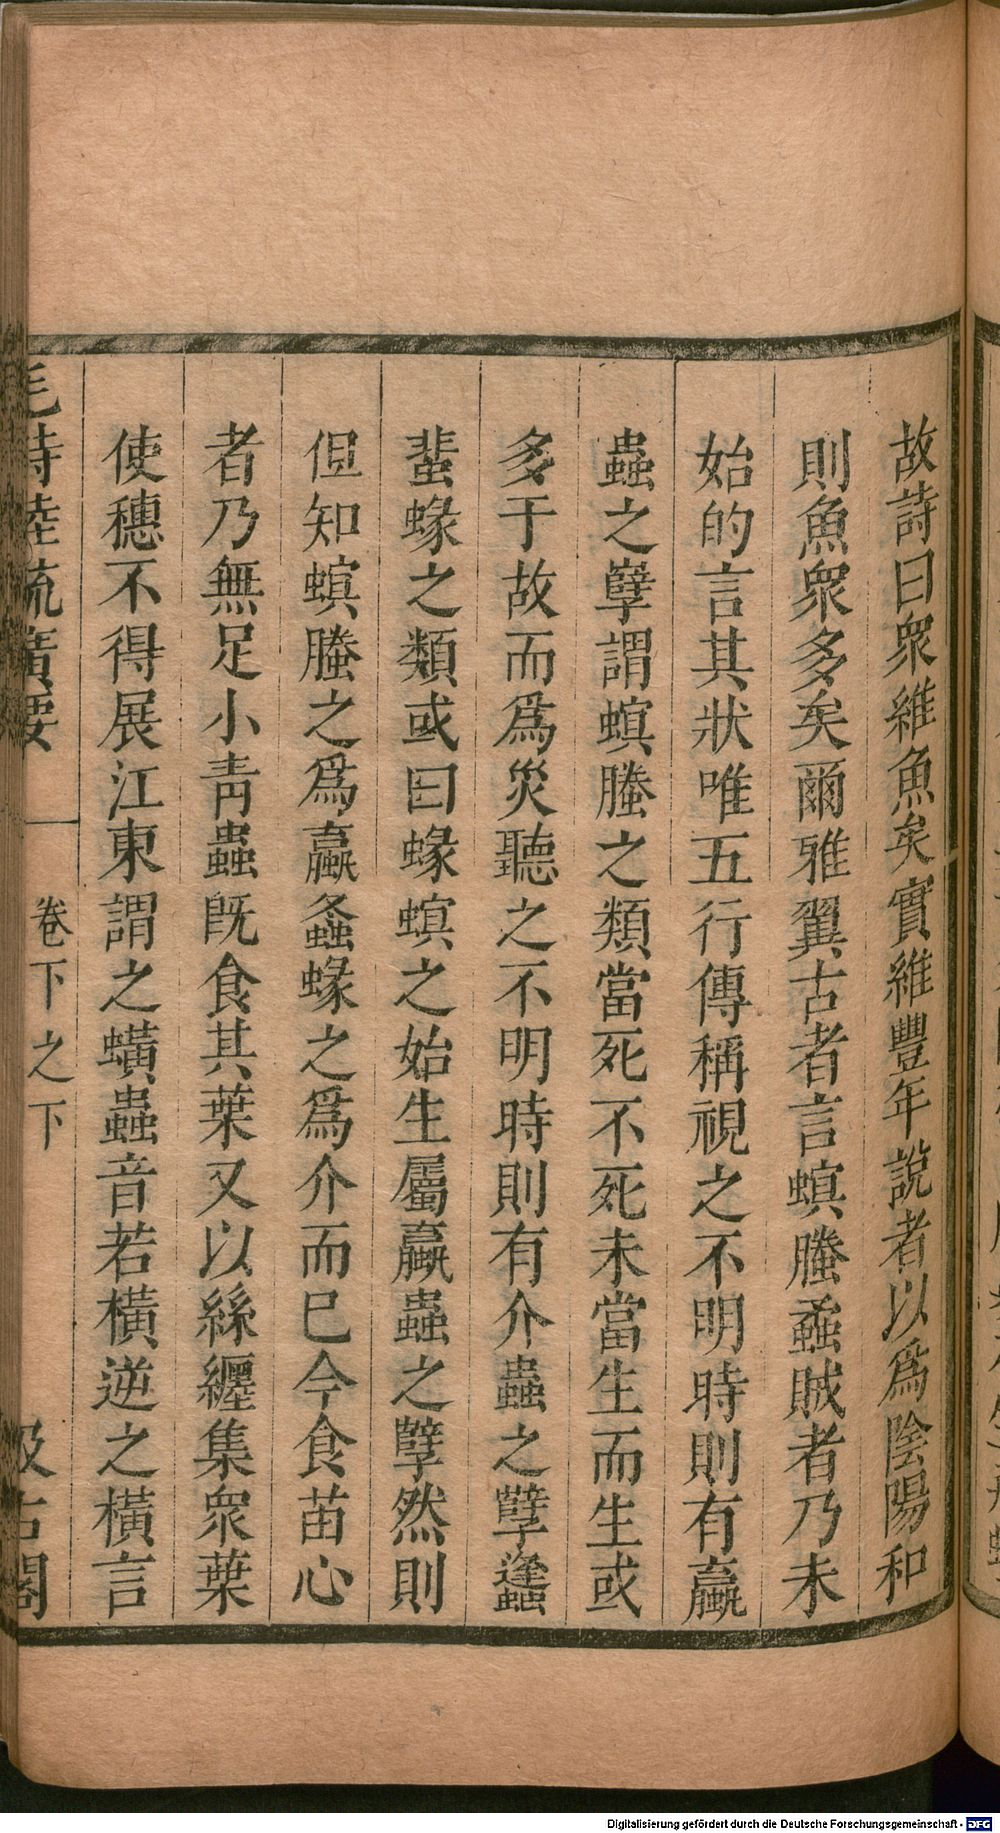 故詩曰衆維魚矣實維豐年說者以爲陰陽和
則魚衆多矣爾雅翼古者言螟螣蟊賊者乃未
始的言其狀唯五行傳稱視之不明時則有蠃
蟲之孼謂螟螣之類當死不死未當生而生或
多于故而爲災聽之不明時則有介蟲之孼蠭
蜚蝝之類或曰蝝螟之始生屬蠃蟲之孼然則
但知螟螣之爲蠃螽蝝之爲介而巳今食苗心
者乃無足小靑蟲旣食其葉又以絲纏集衆葉
使穗不得展江東謂之蟥蟲音若橫逆之橫言
毛詩陸疏廣要
卷下之下
汲古閣
Digitalisierung gefördert durch die Deutsche Forschungsgemeinschaft - DFG